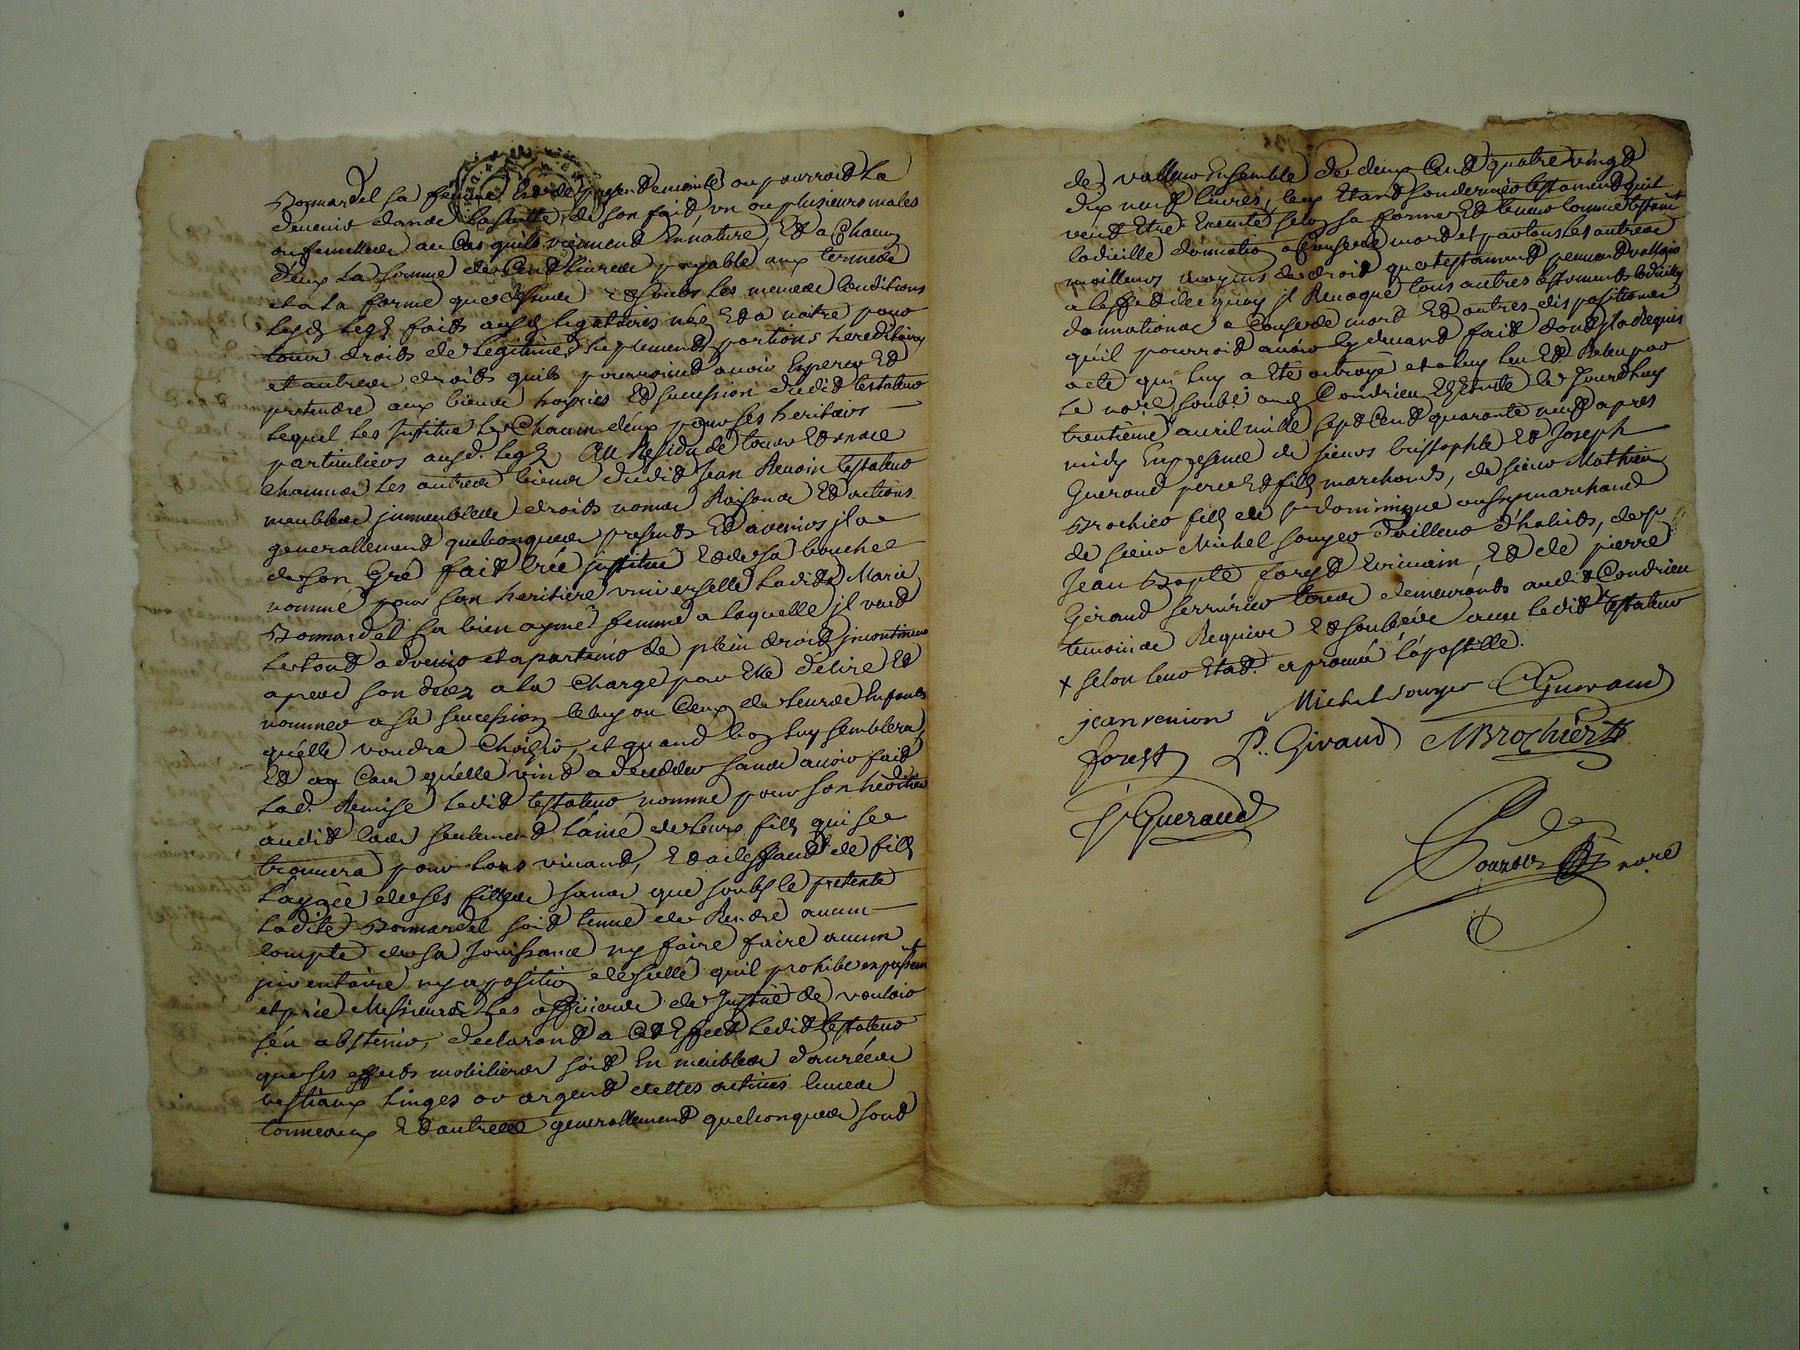 Bonnardel sa femme Est de presend enceinte ou pourroid La
devenir dans la suitte, de son faid un ou plusieurs males
ou femelles au Cas quils viennend En nature, Et a Chacun
deux La somme de Cend Livres payable aux termes
et a La forme que dessus Et soubs les memes Conditions
Lesd Legs faits ausd Legataires nés Et a naitre pour
tous droits de Legitime, suplement, portions hereditaires
et autres droits quils pourroient avoir Esperer Et
pretendre aux biens hoyries Et succession dudit testateur
Lequel Les Institue Le Chacun deux pour ses heritiers
particuliers ausd. Legs Au Residu de tous Et un
chacuns Les autres biens dudit Jean Renoin testateur
meubles immeubles droits noms Raisons Et actions
generallement quelconques presents Et avenirs il a
de son Gré fait Créé jnstitué Et de sa bouche
nommé pour son heritiere universelle Ladite Marie
Bonnardel sa bien aymé femme a laquelle il veut
Le tout advenir et apartenir de plein droit incontinent
apres son decez a la Charge par Elle d'elire Et
nommer a sa succession celuy ou Ceux de Leurs Enfants
qu'elle voudra Choisir, et quand bon luy semblera,
Et au Cas qu'elle vint a decedder sans avoir faid
Lad. Remise Ledit testateur nomme pour son heritier
audit Cas seulement L'ainé de Leurs fills qui se
trouvera pour Lors vivand, Et a deffaud de fills
L'aynée de ses filles sans que soubs le pretexte
Ladite Bonnardel soit tenue de Rendre aucun
compte de sa Jouissance ny faire faire aucun
inventaire ny aposition de scellé quil prohibe expressement
et prie Messieurs Les officiers de Justice de vouloir
s'en abstenir, declarand a Cet Effect Ledit testateur
que ses effects mobiliers soit En meubles danrées
bestiaux Linges or argent dettes actives Cuves
tonneaux Et autres generallement quelconques sont
de valleur Ensemble de deux Cend quatre vingt
dix neuf livres, ceux Etand son dernier testament quil
veut Etre Executé selon sa forme Et teneur comme testament
codicille donnation a Cause de mord et par tous Les autres
meilleurs moyens de droit que testament peuvend valloir
a Leffet de quoy il Revoque tous autres testaments codicilles
donnations a Cause de mort Et autres dispositions
qu'il pourroid avoir cy devant faid dont il a Requis
acte qui Luy a Eté octroyé et a luy Leu Et Releu par
Le no.re soub.é aud Condrieu Et Etude Le Jourd'huy
trentieme avril mille sept Cent quarante neuf apres
midy En presence de sieurs Cristophle Et Joseph
Gueraud pere Et fils marchands, de sieur Mathieu
Brochier fils de s.r dominique aussy marchand
de sieur Michel souyer Tailleur d'habits, de s.r
Jean Bapte forest Ecrivain, Et de pierre
Giraud serrurier tous demeurants audit Condrieu
temoins Requis Et soub.nés avec Ledit testateur
+ selon leur Etat. approuvé l'apostille.
jean renion Michel Souyer CGueraud
forest P. Giraud MBrochier
J Gueraud
no.re